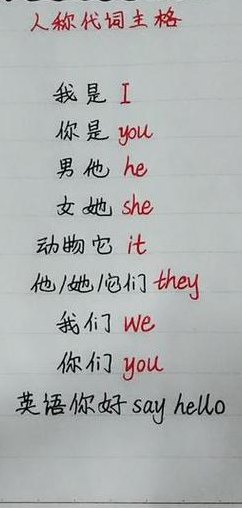 人称代词主格
我是 I
你是 you
男他 he
女她 she
动物它 it
他/她/它们 they
我们 we
你们 you
英语你好 say hello